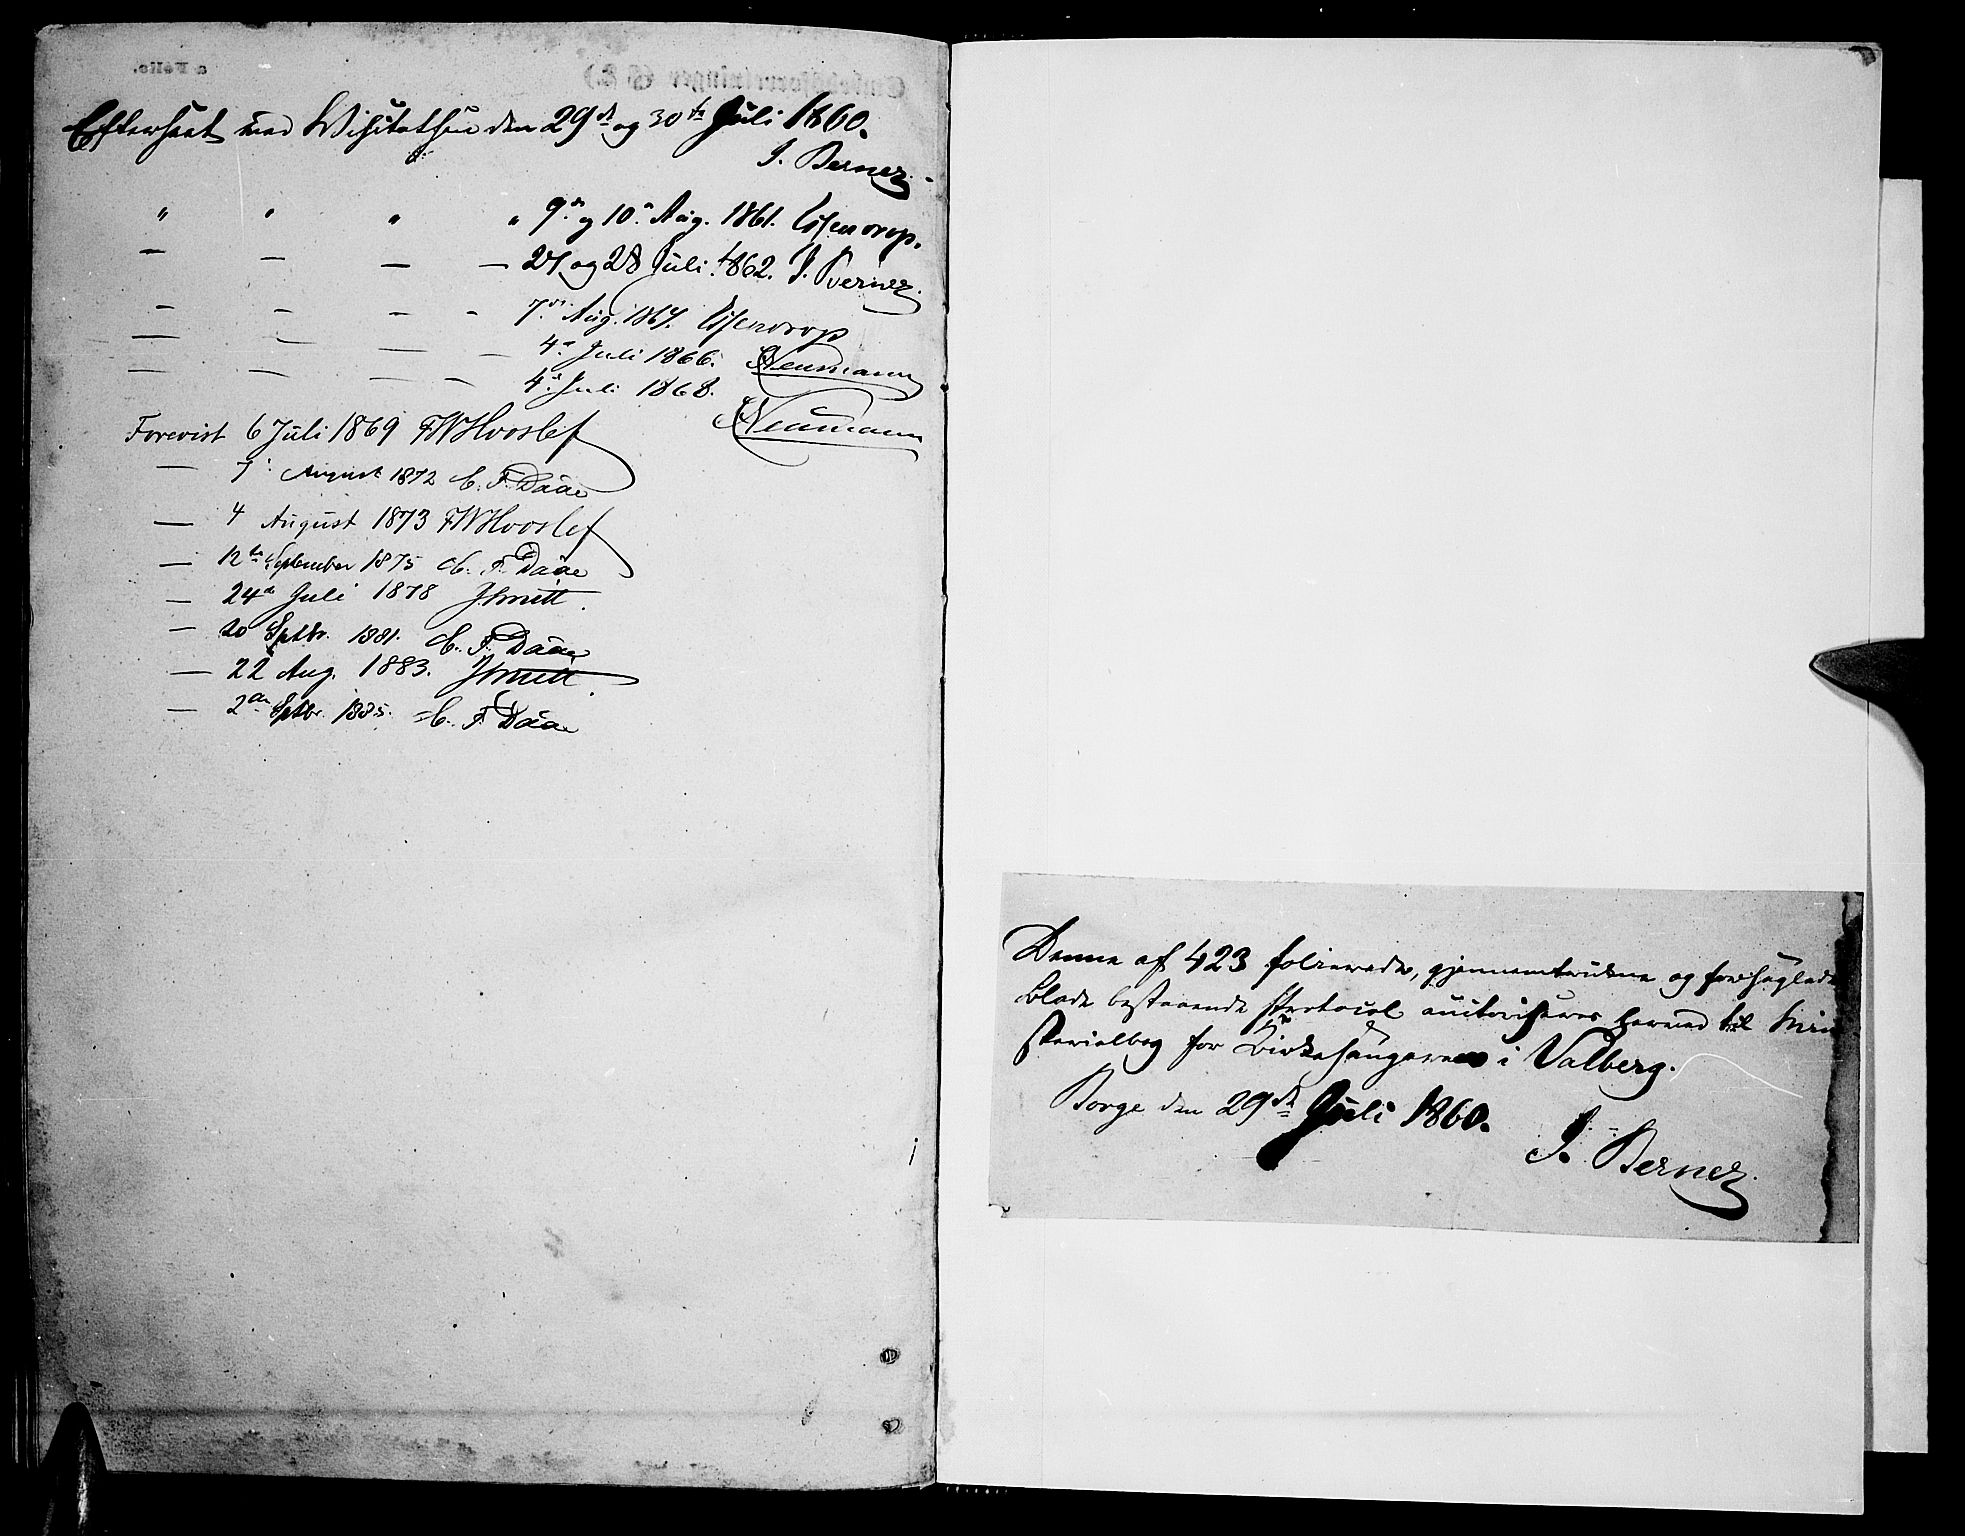 Efterseet ved Visitatsen den 29de og 30te Juli 1860.
J. Berner
" " " " 9de og 10de Aug. 1861. Essendrop.
— — — — 27 og 28 Juli 1862. J. Berner
— — — — 7de Aug. 1864. Essendrop
— — — — 4de Juli 1866. Neumann
— — — — 4de Juli 1868.
Neumann
Forevist 6 Juli 1869 FWHvoslef
— 7de August 1872 C. F. Daae
— 4 August 1873 FWHvoslef
— 12te September 1875 C. F. Daae
— 24de Juli 1878 JSmitt.
— 20 Septbr. 1881. C. F. Daae
— 22 Aug. 1883. JSmitt.
— 2den Septbr. 1885. C. F. Daae
Denne af 423 folierede, gjennemtrukne og forseglede
Blade bestaaende Protocol autoriseres herved til Mini
sterialbog for Kirkesangeren i Valberg.
Borge den 29de Juli 1860.
J. Berner